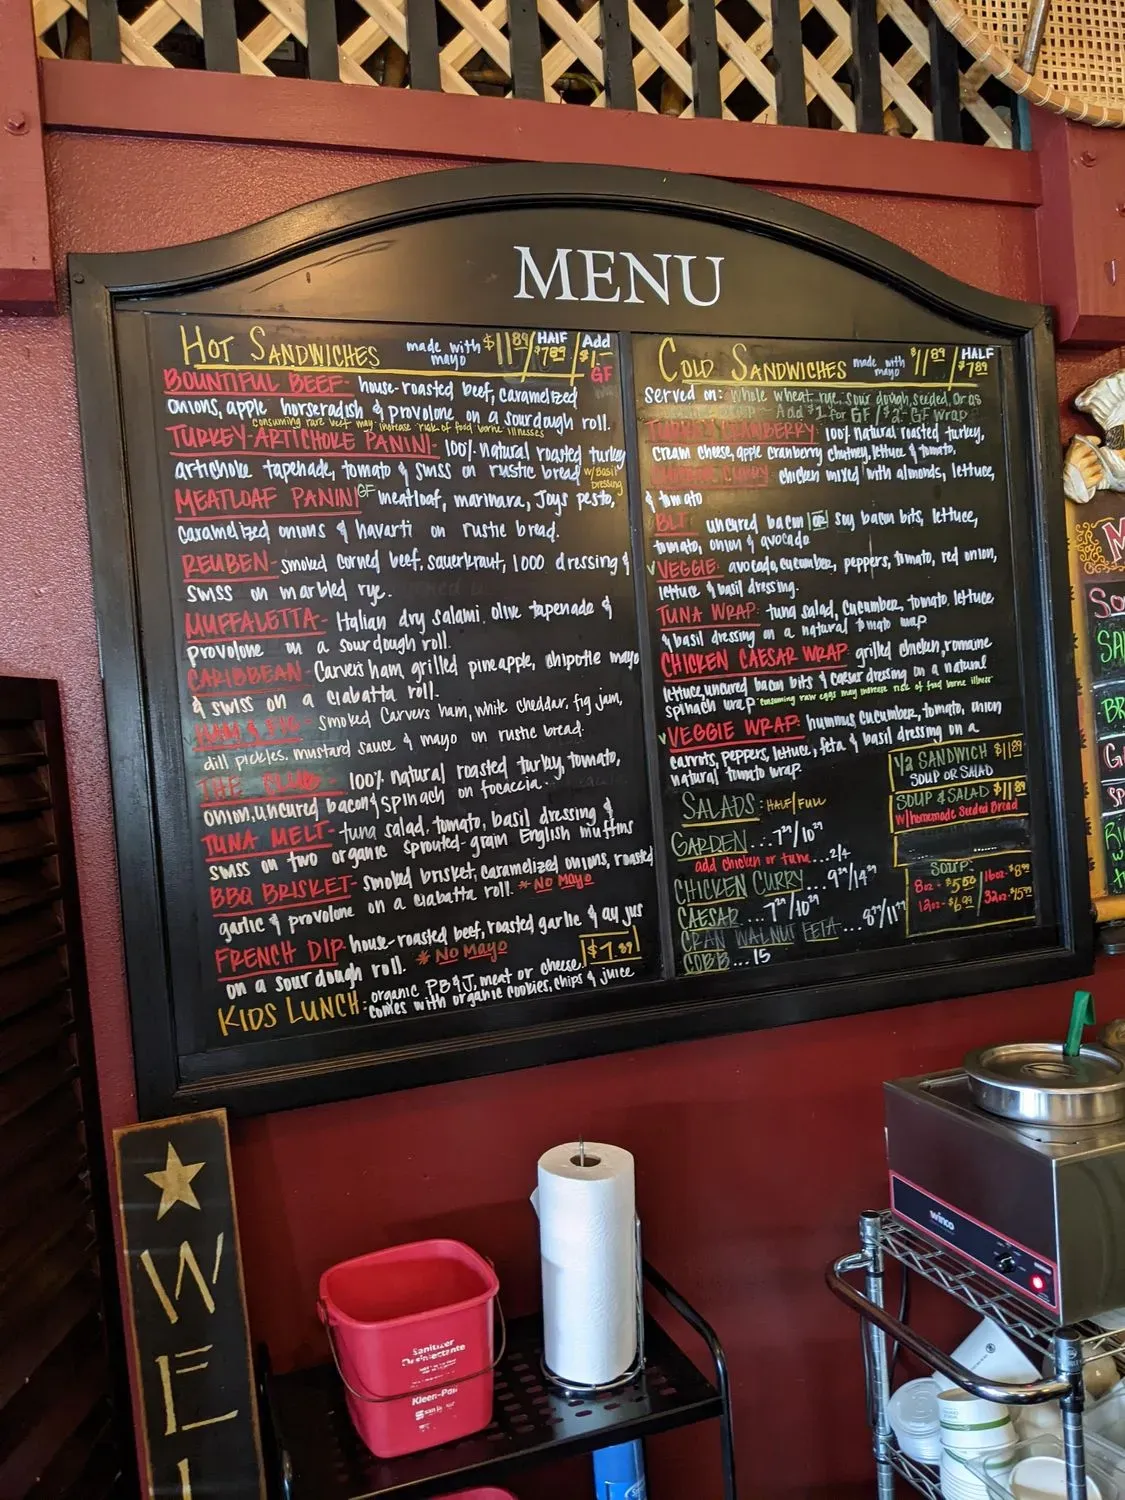 MENU
HOT SANDWICHES made with mayo $11.89 / HALF $7.89 / Add $1- GF
BOUNTIFUL BEEF- house-roasted beef, caramelized
onions, apple horseradish & provolone on a sourdough roll.
consuming rare beef may increase risk of food borne illnesses
TURKEY-ARTICHOKE PANINI- 100% natural roasted turkey
artichoke tapenade, tomato & swiss on rustic bread w/Basil Dressing
MEATLOAF PANINI GF meatloaf, marinara, Joys pesto,
caramelized onions & havarti on rustic bread.
REUBEN- smoked corned beef, sauerkraut, 1000 dressing &
swiss on marbled rye.
MUFFALETTA- Italian dry salami, olive tapenade &
provolone on a sourdough roll.
CARIBBEAN- Carvers ham, grilled pineapple, chipotle mayo
& swiss on a ciabatta roll.
HAM & FIG- smoked Carvers ham, white cheddar, fig jam,
dill pickles, mustard sauce & mayo on rustic bread.
THE CLUB- 100% natural roasted turkey, tomato,
onion, uncured bacon & spinach on focaccia.
TUNA MELT- tuna salad, tomato, basil dressing &
swiss on two organic sprouted-grain English muffins
BBQ BRISKET- smoked brisket, caramelized onions, roasted
garlic & provolone on a ciabatta roll. * No Mayo
FRENCH DIP- house-roasted beef, roasted garlic & au jus
on a sourdough roll. * No Mayo
$7.89
KIDS LUNCH: organic PB&J, meat or cheese
comes with organic cookies, chips & juice
COLD SANDWICHES made with mayo $11.89 / HALF $7.89
served on: whole wheat, rye, sourdough, seeded, or as
Add $1 for GF / $2- GF wrap
TURKEY CRANBERRY: 100% natural roasted turkey,
cream cheese, apple cranberry chutney, lettuce & tomato,
CHICKEN CURRY: chicken mixed with almonds, lettuce,
& tomato
BLT: uncured bacon OR soy bacon bits, lettuce,
tomato, onion & avocado
VEGGIE: avocado, cucumber, peppers, tomato, red onion,
lettuce & basil dressing.
TUNA WRAP: tuna salad, cucumber, tomato, lettuce
& basil dressing on a natural tomato wrap
CHICKEN CAESAR WRAP: grilled chicken, romaine
lettuce, uncured bacon bits & caesar dressing on a natural
spinach wrap consuming raw eggs may increase risk of food borne illness
VEGGIE WRAP: hummus, cucumber, tomato, onion
carrots, peppers, lettuce, feta & basil dressing on a
natural tomato wrap.
1/2 SANDWICH $11.89
SOUP OR SALAD
SOUP & SALAD $11.89
w/homemade Seeded Bread
SALADS: HALF/FULL
GARDEN...7.29/10.29
add chicken or tuna...2/4
CHICKEN CURRY...9.29/14.29
CAESAR...7.29/10.29
CRAN WALNUT FETA...8.29/11.29
COBB...15
SOUP:
8oz - $5.50 16oz - $8.99
12oz - $6.99 32oz - $15.99
WEL
Sanitizer
Desinfectante
Kleen-Pail
winco